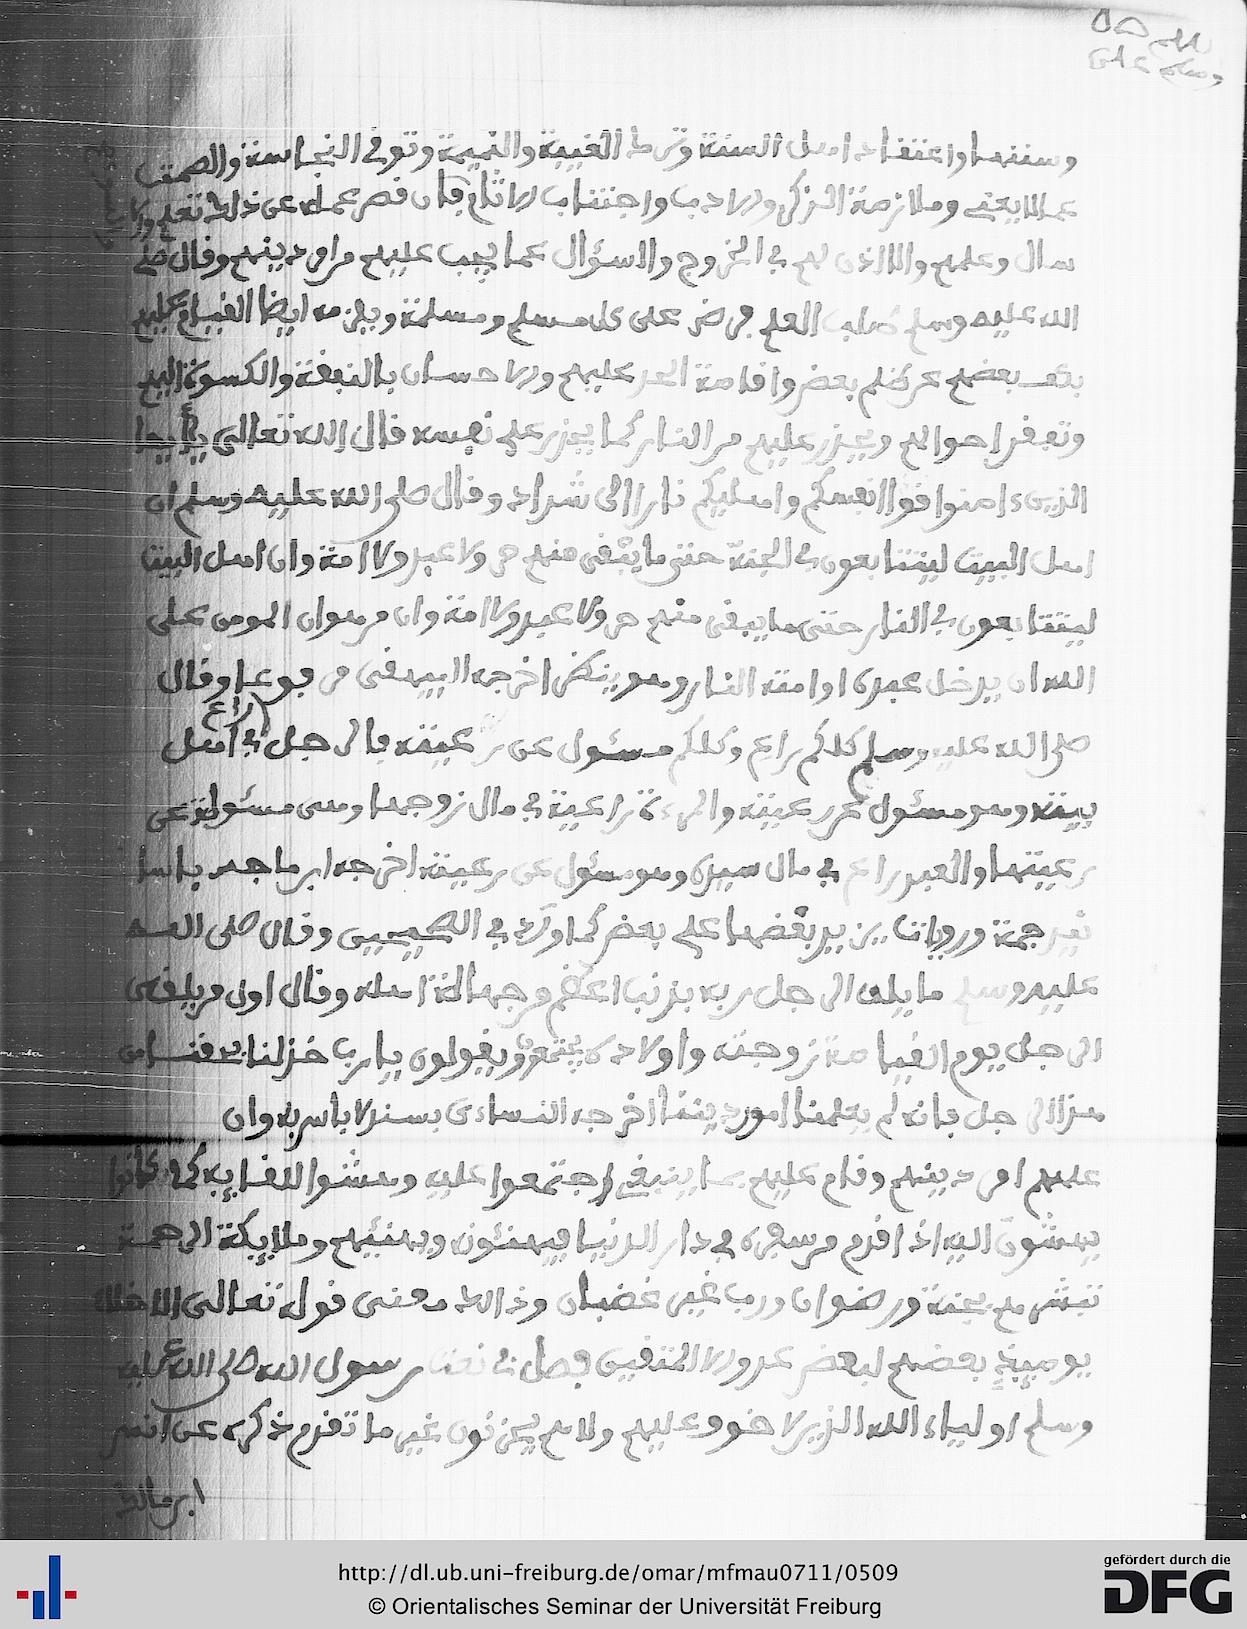 وسننها واعتقاد اهل السنة وترك الغيبة والنميمة وتوفي النجاسة والصمت
عما لا يعني وملازمة الذكر والادب واجتناب الاثام فكان قصر عمله عن ذلك تعلم ولا
سال وعلمهم والا اذن لهم في الخروج والسؤال عما يجب عليهم من امر دينهم وقال صلى
الله عليه وسلم طلب العلم فرض على كل مسلم ومسلمة ويلزمه ايضا القيام عليهم
بكف بعضهم عن ظلم بعض واقامة الحد عليهم والاحسان بالنفقة والكسوة اليهم
وتفقد احوالهم ويحذر عليهم من النار كما يحذر على نفسه قال الله تعالى يأيها
الذين ءامنوا قوا انفسكم واهليكم نارا الى شداد وقال صلى الله عليه وسلم ان
اهل البيت ليتتابعون في الجنة حتى ما يبقى منهم حر ولا عبد ولا امة وان اهل البيت
ليتتابعون في النار حتى ما يبقى منهم حر ولا عبد ولا امة وان من هوان المومن على
الله ان يدخل عبده او امته النار وهو ينظر اخرجه البيهقي مرفوعا وقال
صلى الله عليه وسلم كلكم راع وكلكم مسئول عن رعيته فالرجل راع في اهل
بيته وهو مسئول عن رعيته والمرءة راعية في مال زوجها وهى مسئولة عن
رعيتها والعبد راع في مال سيده وهو مسئول عن رعيته اخرجه ابن ماجه باسا
نيد جمة وروايات يزيد بعضها على بعض كما ورد في الصحيحين وقال صلى الله
عليه وسلم ما يلقى الرجل ربه بذنب اعظم من جهالة اهله وقال اول من يلقى
الرجل يوم القيامة زوجته واولاده يجتمعون ويقولون يا رب خذ لنا بحقنا من
هذا الرجل فانه لم يعلمنا امور ديننا اخرجه النساءى بسند لا باس به وان
علمهم امر دينهم وقام عليهم بما ينبغي اجتمعوا عليه وهشوا للقايه كما كانوا
يهشون اليه اذا قدم من سفره في دار الدنيا فيهنئون ويهنئهم وملايكة الرحمة
تبشرهم بجنة ورضوان ورب غير غضبان وذالك معنى قوله تعالى الاخلاء
يوميذ بعضهم لبعض عدو الا المتقين فصل في نعت رسول الله صلى الله عليه
وسلم اولياء الله الذين لا خوف عليهم ولا هم يحزنون غير ما تقدم ذكره عن انس
ابن مالك
http://dl.ub.uni-freiburg.de/omar/mfmau0711/0509
© Orientalisches Seminar der Universität Freiburg
gefördert durch die
DFG